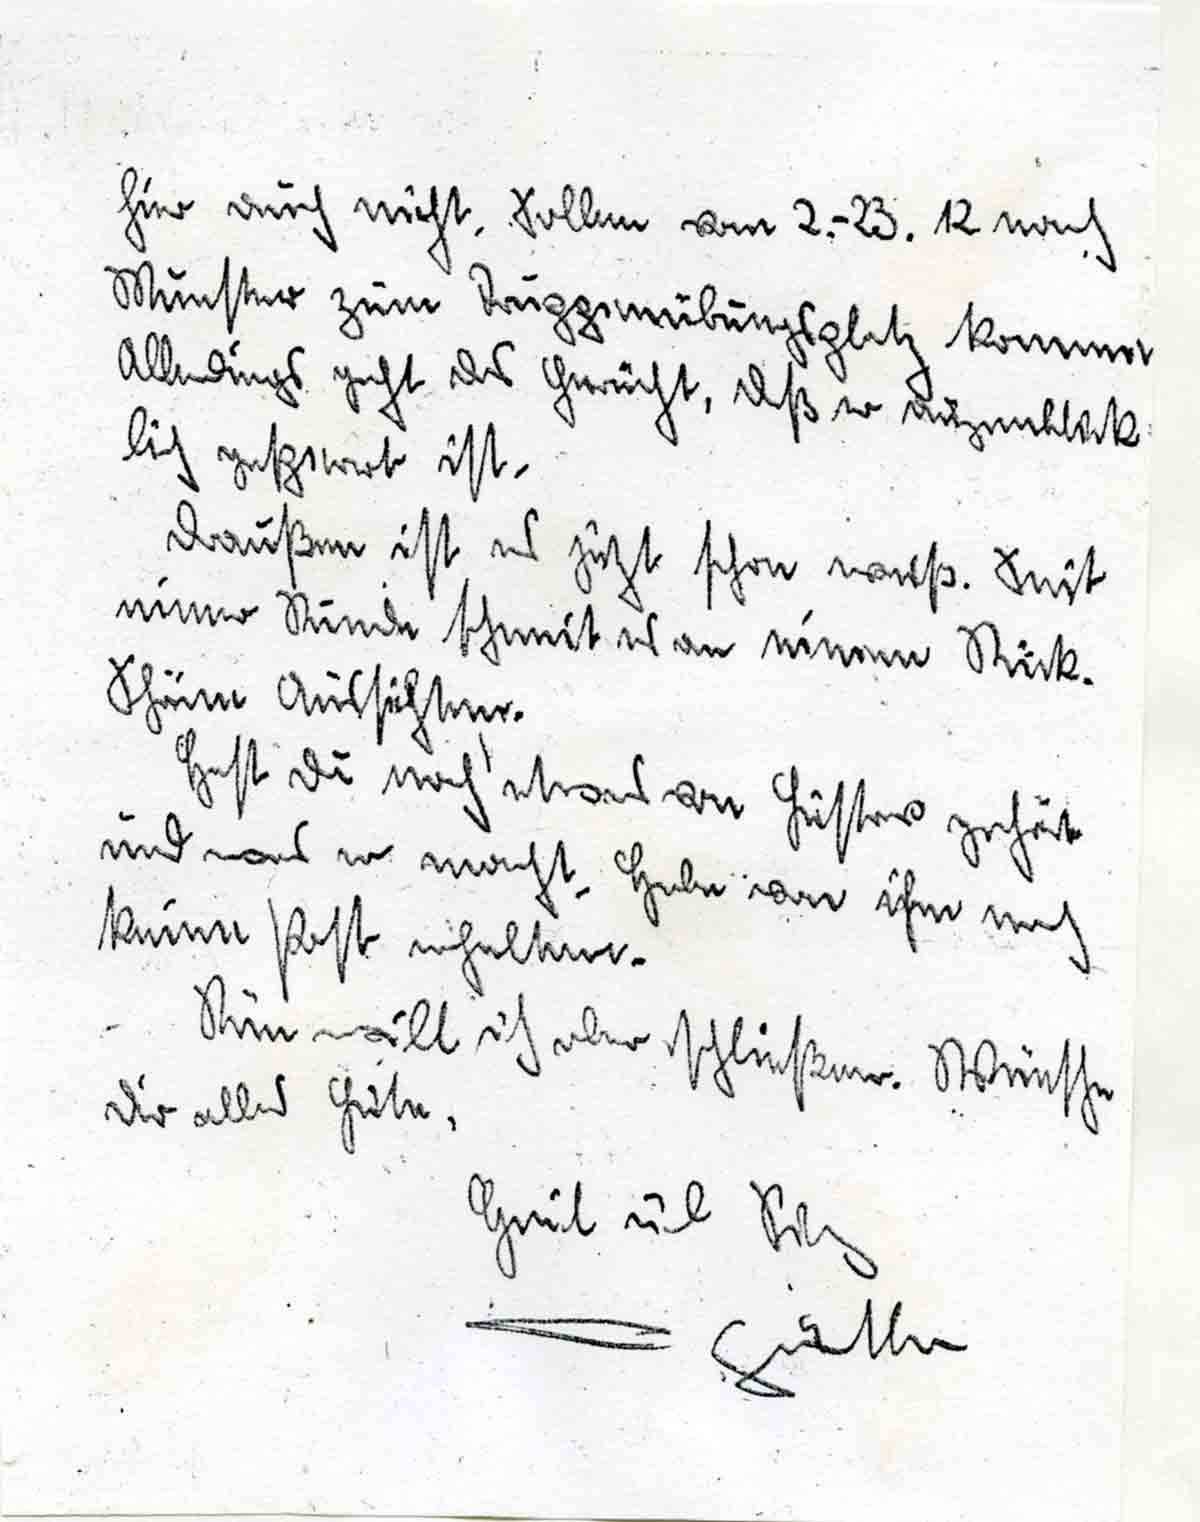 hier auch nicht. Sollen vom 2.-23. 12 nach
Munster zum Truppenübungsplatz kommen
Allerdings geht das Gerücht, daß er augenblick
lich gesperrt ist.
Draußen ist es jetzt schon weiß. Seit
einer Stunde schneit es an einem Stück.
Schöne Aussichten.
Hast Du noch etwas von Gustav gehört
und was er macht. Habe von ihm noch
keine Post erhalten.
Nun will ich aber schließen. Wünsche
Dir alles Gute.
Heil und Sieg